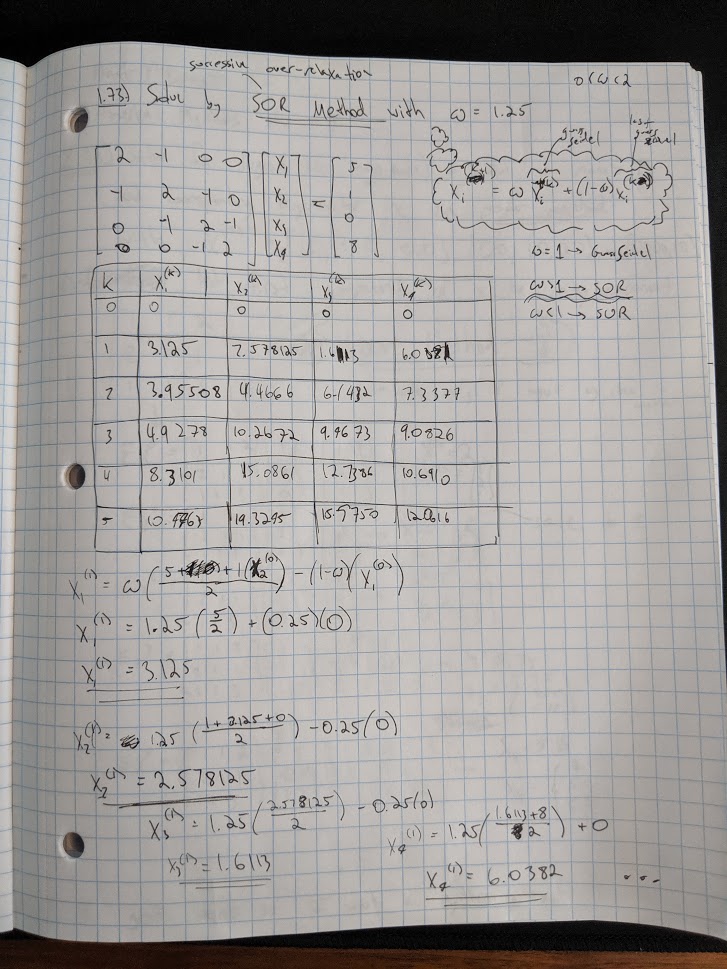 successive over-relaxation
1.73) Solve by SOR Method with ω = 1.25
0<ω<2
gauss seidel
last gauss seidel
[2 -1 0 0] [x₁] [5]
[-1 2 -1 0] [x₂] = [1]
[0 -1 2 -1] [x₃] [0]
[0 0 -1 2] [x₄] [8]
xᵢ = ω xᵢ + (1-ω) xᵢ
ω=1 → Gauss Seidel
ω>1 → SOR
ω<1 → SUR
k x₁⁽ᵏ⁾ x₂⁽ᵏ⁾ x₃⁽ᵏ⁾ x₄⁽ᵏ⁾
0 0 0 0 0
1 3.125 2.578125 1.6113 6.0381
2 3.95508 4.4666 6.1432 7.3377
3 4.9278 10.2672 9.9673 9.0826
4 8.3101 15.0861 12.7386 10.6910
5 19.3295 12.0616
x₁⁽¹⁾ = ω ( (5 + 1(x₂⁽⁰⁾)) / 2 ) - (1-ω)(x₁⁽⁰⁾)
x₁⁽¹⁾ = 1.25 (5/2) + (0.25)(0)
x₁⁽¹⁾ = 3.125
x₂⁽¹⁾ = 1.25 ( (1 + 3.125 + 0) / 2 ) - 0.25(0)
x₂⁽¹⁾ = 2.578125
x₃⁽¹⁾ = 1.25 ( 2.578125 / 2 ) - 0.25(0)
x₃⁽¹⁾ = 1.6113
x₄⁽¹⁾ = 1.25 ( (1.6113 + 8) / 2 ) + 0
x₄⁽¹⁾ = 6.0382 ...